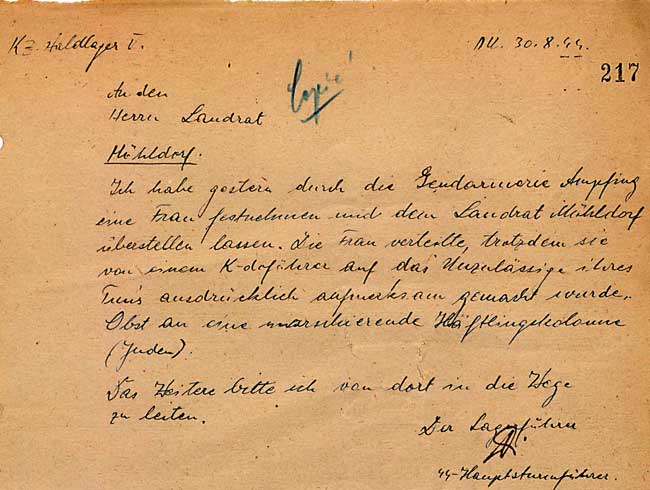 KZ. Waldlager V.
Au. 30.8.44.
217
Copie!
An den
Herrn Landrat
Mühldorf.
Ich habe gestern durch die Gendarmerie Ampfing
eine Frau festnehmen und dem Landrat Mühldorf
überstellen lassen. Die Frau verteilte, trotzdem sie
von einem K-doführer auf das Unzulässige ihres
Tun's ausdrücklich aufmerksam gemacht wurde,
Obst an eine marschierende Häftlingskolonne
(Juden).
Das Weitere bitte ich von dort in die Wege
zu leiten.
Der Lagerführer
44-Hauptsturmführer.